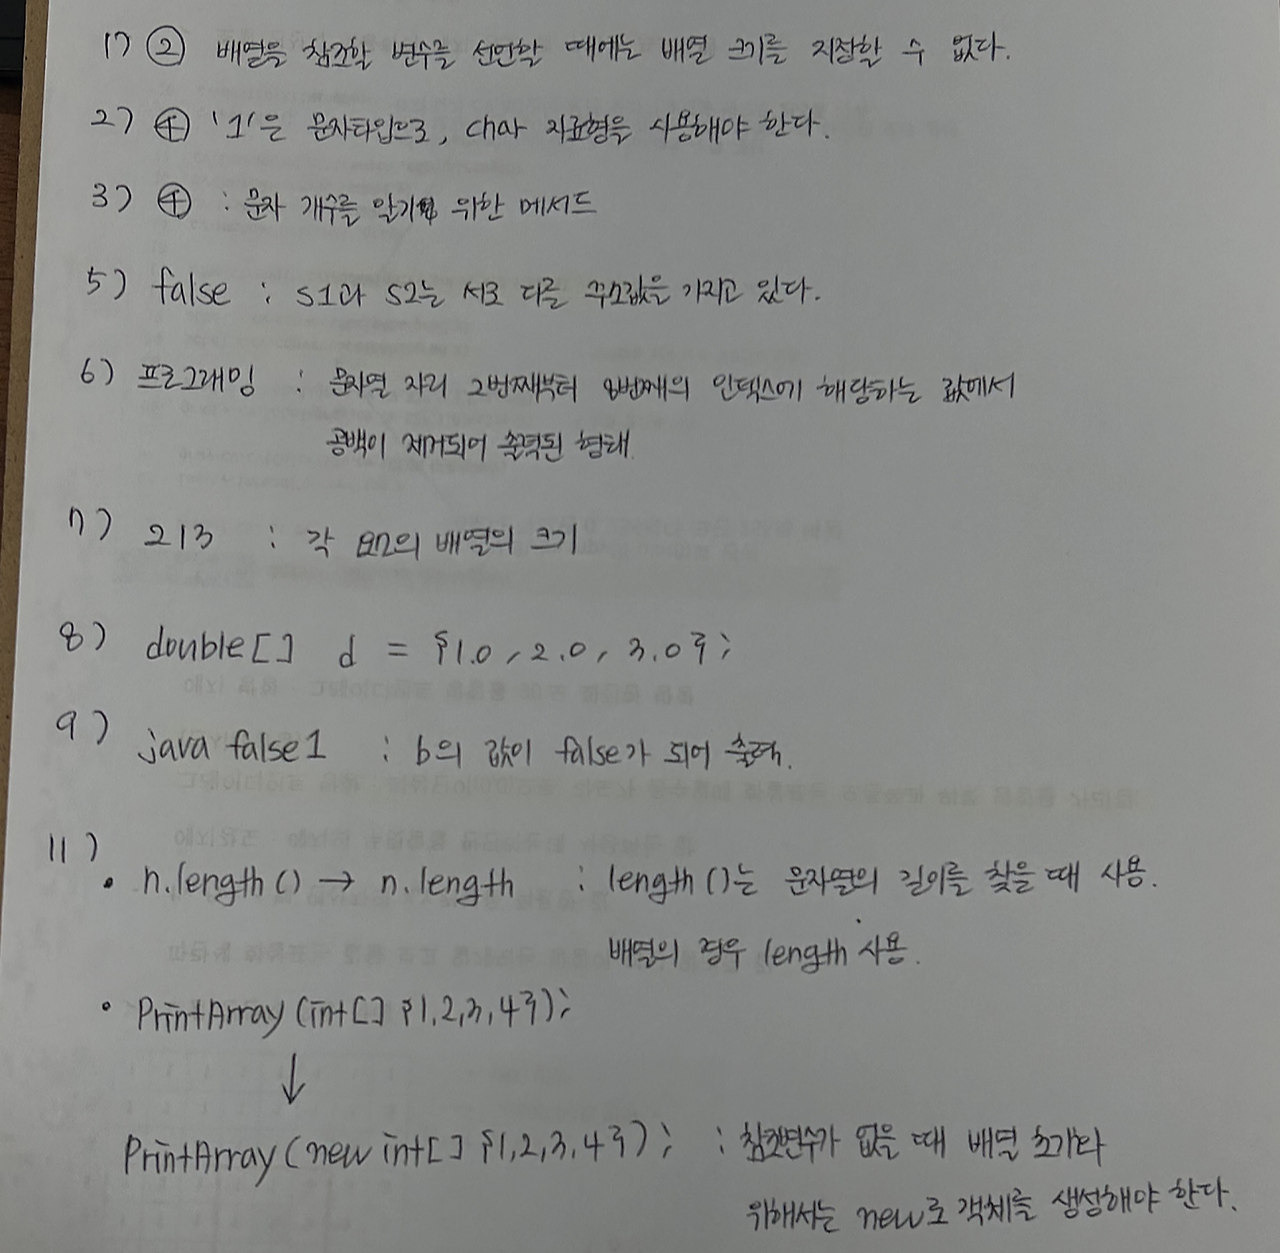 1) ② 배열을 참조할 변수를 선언할 때에는 배열 크기를 지정할 수 없다.
2) ④ '1'은 문자타입으로, char 자료형을 사용해야 한다.
3) ④ : 문자 개수를 알기 위한 메서드
5) false : s1과 s2는 서로 다른 주소값을 가지고 있다.
6) 프로그래밍 : 문자열 자리 2번째부터 8번째의 인덱스에 해당하는 값에서
공백이 제거되어 출력된 형태.
7) 213 : 각 행의 배열의 크기
8) double[] d = {1.0, 2.0, 3.0};
9) java false1 : b의 값이 false가 되어 출력.
11)
• n.length() → n.length : length()는 문자열의 길이를 찾을 때 사용.
배열의 경우 length 사용.
• PrintArray (int[] {1,2,3,4});
↓
PrintArray (new int[] {1,2,3,4}); : 참조변수가 없을 때 배열 초기화
위해서는 new로 객체를 생성해야 한다.